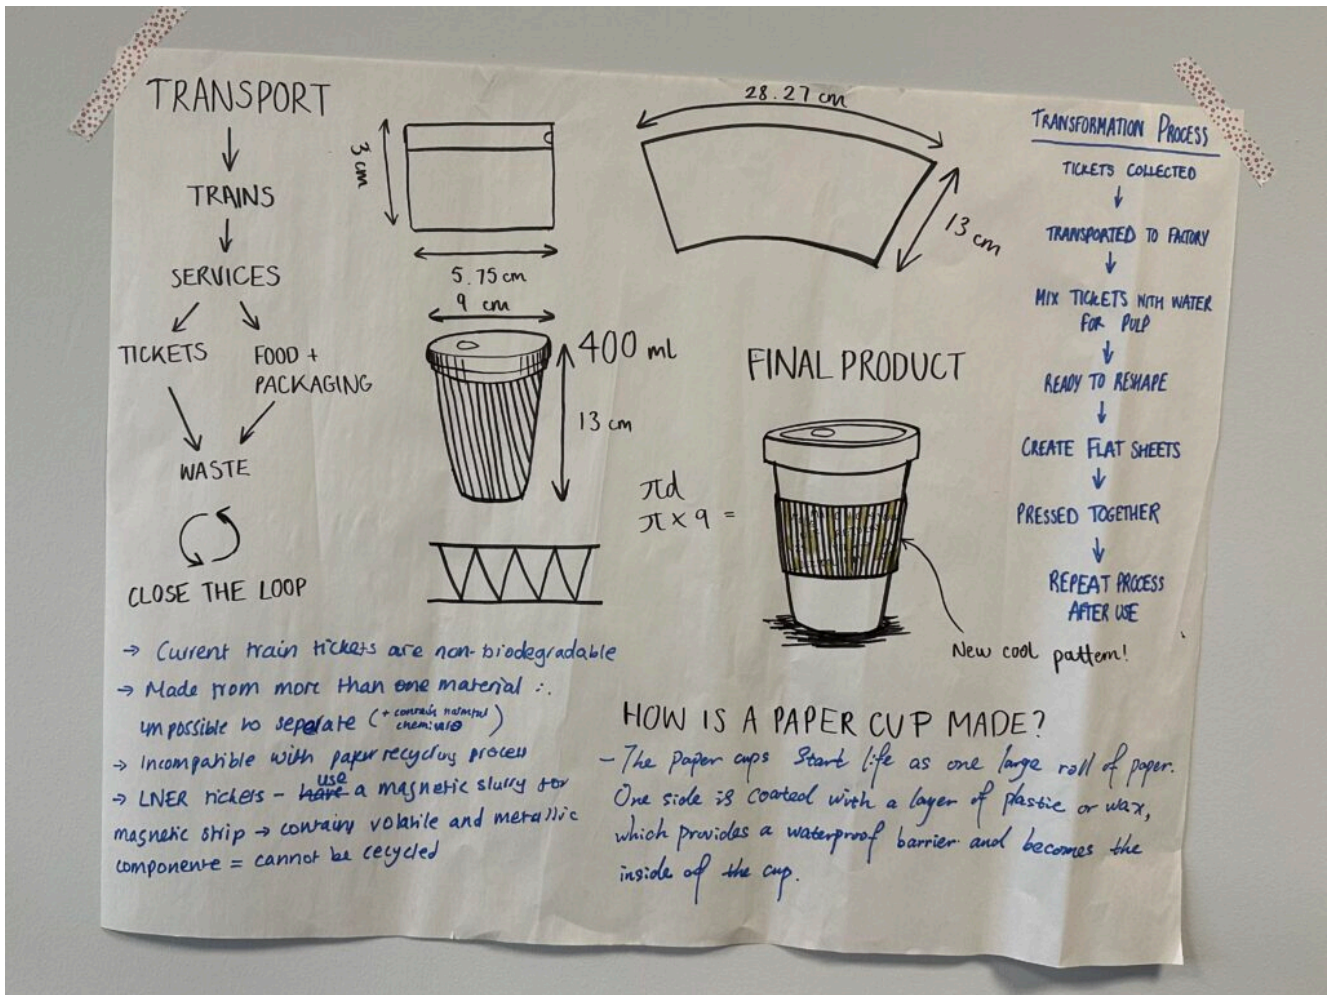 TRANSPORT
TRAINS
SERVICES
TICKETS
FOOD +
PACKAGING
WASTE
CLOSE THE LOOP
3 cm
5.75 cm
9 cm
400 ml
13 cm
28.27 cm
13 cm
πd
π x 9 =
FINAL PRODUCT
New cool pattern!
TRANSFORMATION PROCESS
TICKETS COLLECTED
TRANSPORTED TO FACTORY
MIX TICKETS WITH WATER
FOR PULP
READY TO RESHAPE
CREATE FLAT SHEETS
PRESSED TOGETHER
REPEAT PROCESS
AFTER USE
→ Current train tickets are non-biodegradable
→ Made from more than one material ∴
impossible to separate (+ contain harmful
chemicals)
→ Incompatible with paper recycling process
→ LNER tickets - have use a magnetic slurry for
magnetic strip → contains volatile and metallic
components = cannot be recycled
HOW IS A PAPER CUP MADE?
- The paper cups start life as one large roll of paper.
One side is coated with a layer of plastic or wax,
which provides a waterproof barrier and becomes the
inside of the cup.